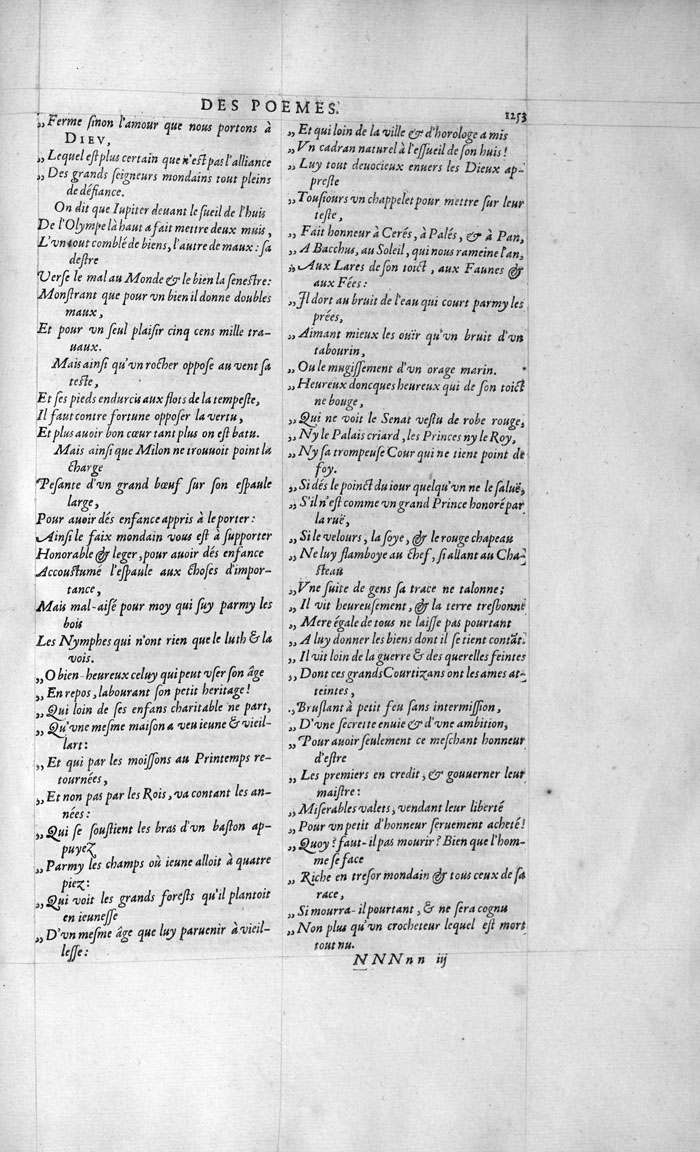 DES POEMES.
1253
„Ferme sinon l'amour que nous portons à
DIEV,
„Lequel est plus certain que n'est pas l'alliance
„Des grands seigneurs mondains tout pleins
de défiance.
On dit que Iupiter deuant le sueil de l'huis
De l'Olympe là haut a fait mettre deux muis,
L'vn tout comblé de biens, l'autre de maux: sa
destre
Verse le mal au Monde & le bien la senestre:
Monstrant que pour vn bien il donne doubles
maux,
Et pour vn seul plaisir cinq cens mille tra-
uaux.
Mais ainsi qu'vn rocher oppose au vent sa
teste,
Et ses pieds endurcis aux flots de la tempeste,
Il faut contre fortune opposer la vertu,
Et plus auoir bon cœur tant plus on est batu.
Mais ainsi que Milon ne trouuoit point la
charge
Pesante d'vn grand bœuf sur son espaule
large,
Pour auoir dés enfance appris à le porter:
Ainsi le faix mondain vous est à supporter
Honorable & leger, pour auoir dés enfance
Accoustumé l'espaule aux choses d'impor-
tance,
Mais mal-aisé pour moy qui suy parmy les
bois
Les Nymphes qui n'ont rien que le luth & la
vois.
„O bien-heureux celuy qui peut vser son âge
„En repos, labourant son petit heritage!
„Qui loin de ses enfans charitable ne part,
„Qu'vne mesme maison a veu ieune & vieil-
lart:
„Et qui par les moissons au Printemps re-
tournées,
„Et non pas par les Rois, va contant les an-
nées:
„Qui se soustient les bras d'vn baston ap-
puyez
„Parmy les champs où ieune alloit à quatre
piez:
„Qui voit les grands forests qu'il plantoit
en ieunesse
„D'vn mesme âge que luy paruenir à vieil-
lesse:
„Et qui loin de la ville & d'horologe a mis
„Vn cadran naturel à l'essueil de son huis!
„Luy tout deuocieux enuers les Dieux ap-
preste
„Tousiours vn chappelet pour mettre sur leur
teste,
„Fait honneur à Cerés, à Palés, & à Pan,
„A Bacchus, au Soleil, qui nous rameine l'an,
„Aux Lares de son toict, aux Faunes &
aux Fées:
„Il dort au bruit de l'eau qui court parmy les
prées,
„Aimant mieux les ouïr qu'vn bruit d'vn
tabourin,
„Ou le mugissement d'vn orage marin.
„Heureux doncques heureux qui de son toict
ne bouge,
„Qui ne voit le Senat vestu de robe rouge,
„Ny le Palais criard, les Princes ny le Roy,
„Ny sa trompeuse Cour qui ne tient point de
foy.
„Si dés le poinct du iour quelqu'vn ne le saluë,
„S'il n'est comme vn grand Prince honoré par
la ruë,
„Si le velours, la soye, & le rouge chapeau
„Ne luy flamboye au chef, si allant au Cha-
steau
„Vne suite de gens sa trace ne talonne;
„Il vit heureusement, & la terre tresbonne
„Mere égale de tous ne laisse pas pourtant
„A luy donner les biens dont il se tient contāt.
„Il vit loin de la guerre & des querelles feintes
„Dont ces grands Courtizans ont les ames at-
teintes,
„Bruslant à petit feu sans intermission,
„D'vne secrette enuie & d'vne ambition,
„Pour auoir seulement ce meschant honneur
d'estre
„Les premiers en credit, & gouuerner leur
maistre:
„Miserables valets, vendant leur liberté
„Pour vn petit d'honneur seruement acheté!
„Quoy? faut-il pas mourir? Bien que l'hom-
me se face
„Riche en tresor mondain & tous ceux de sa
race,
„Si mourra-il pourtant, & ne sera cognu
„Non plus qu'vn crocheteur lequel est mort
tout nu.
NNNnn iij